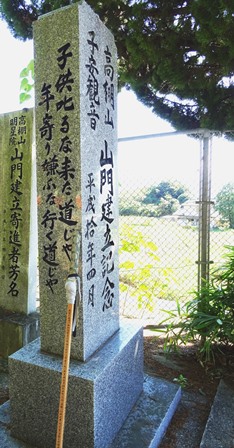 高棚山
子安観音
山門建立記念
平成拾年四月
子供叱るな来た道じゃ
年寄り嫌ふな行く道じゃ
高棚山
明星院
山門建立寄進者芳名